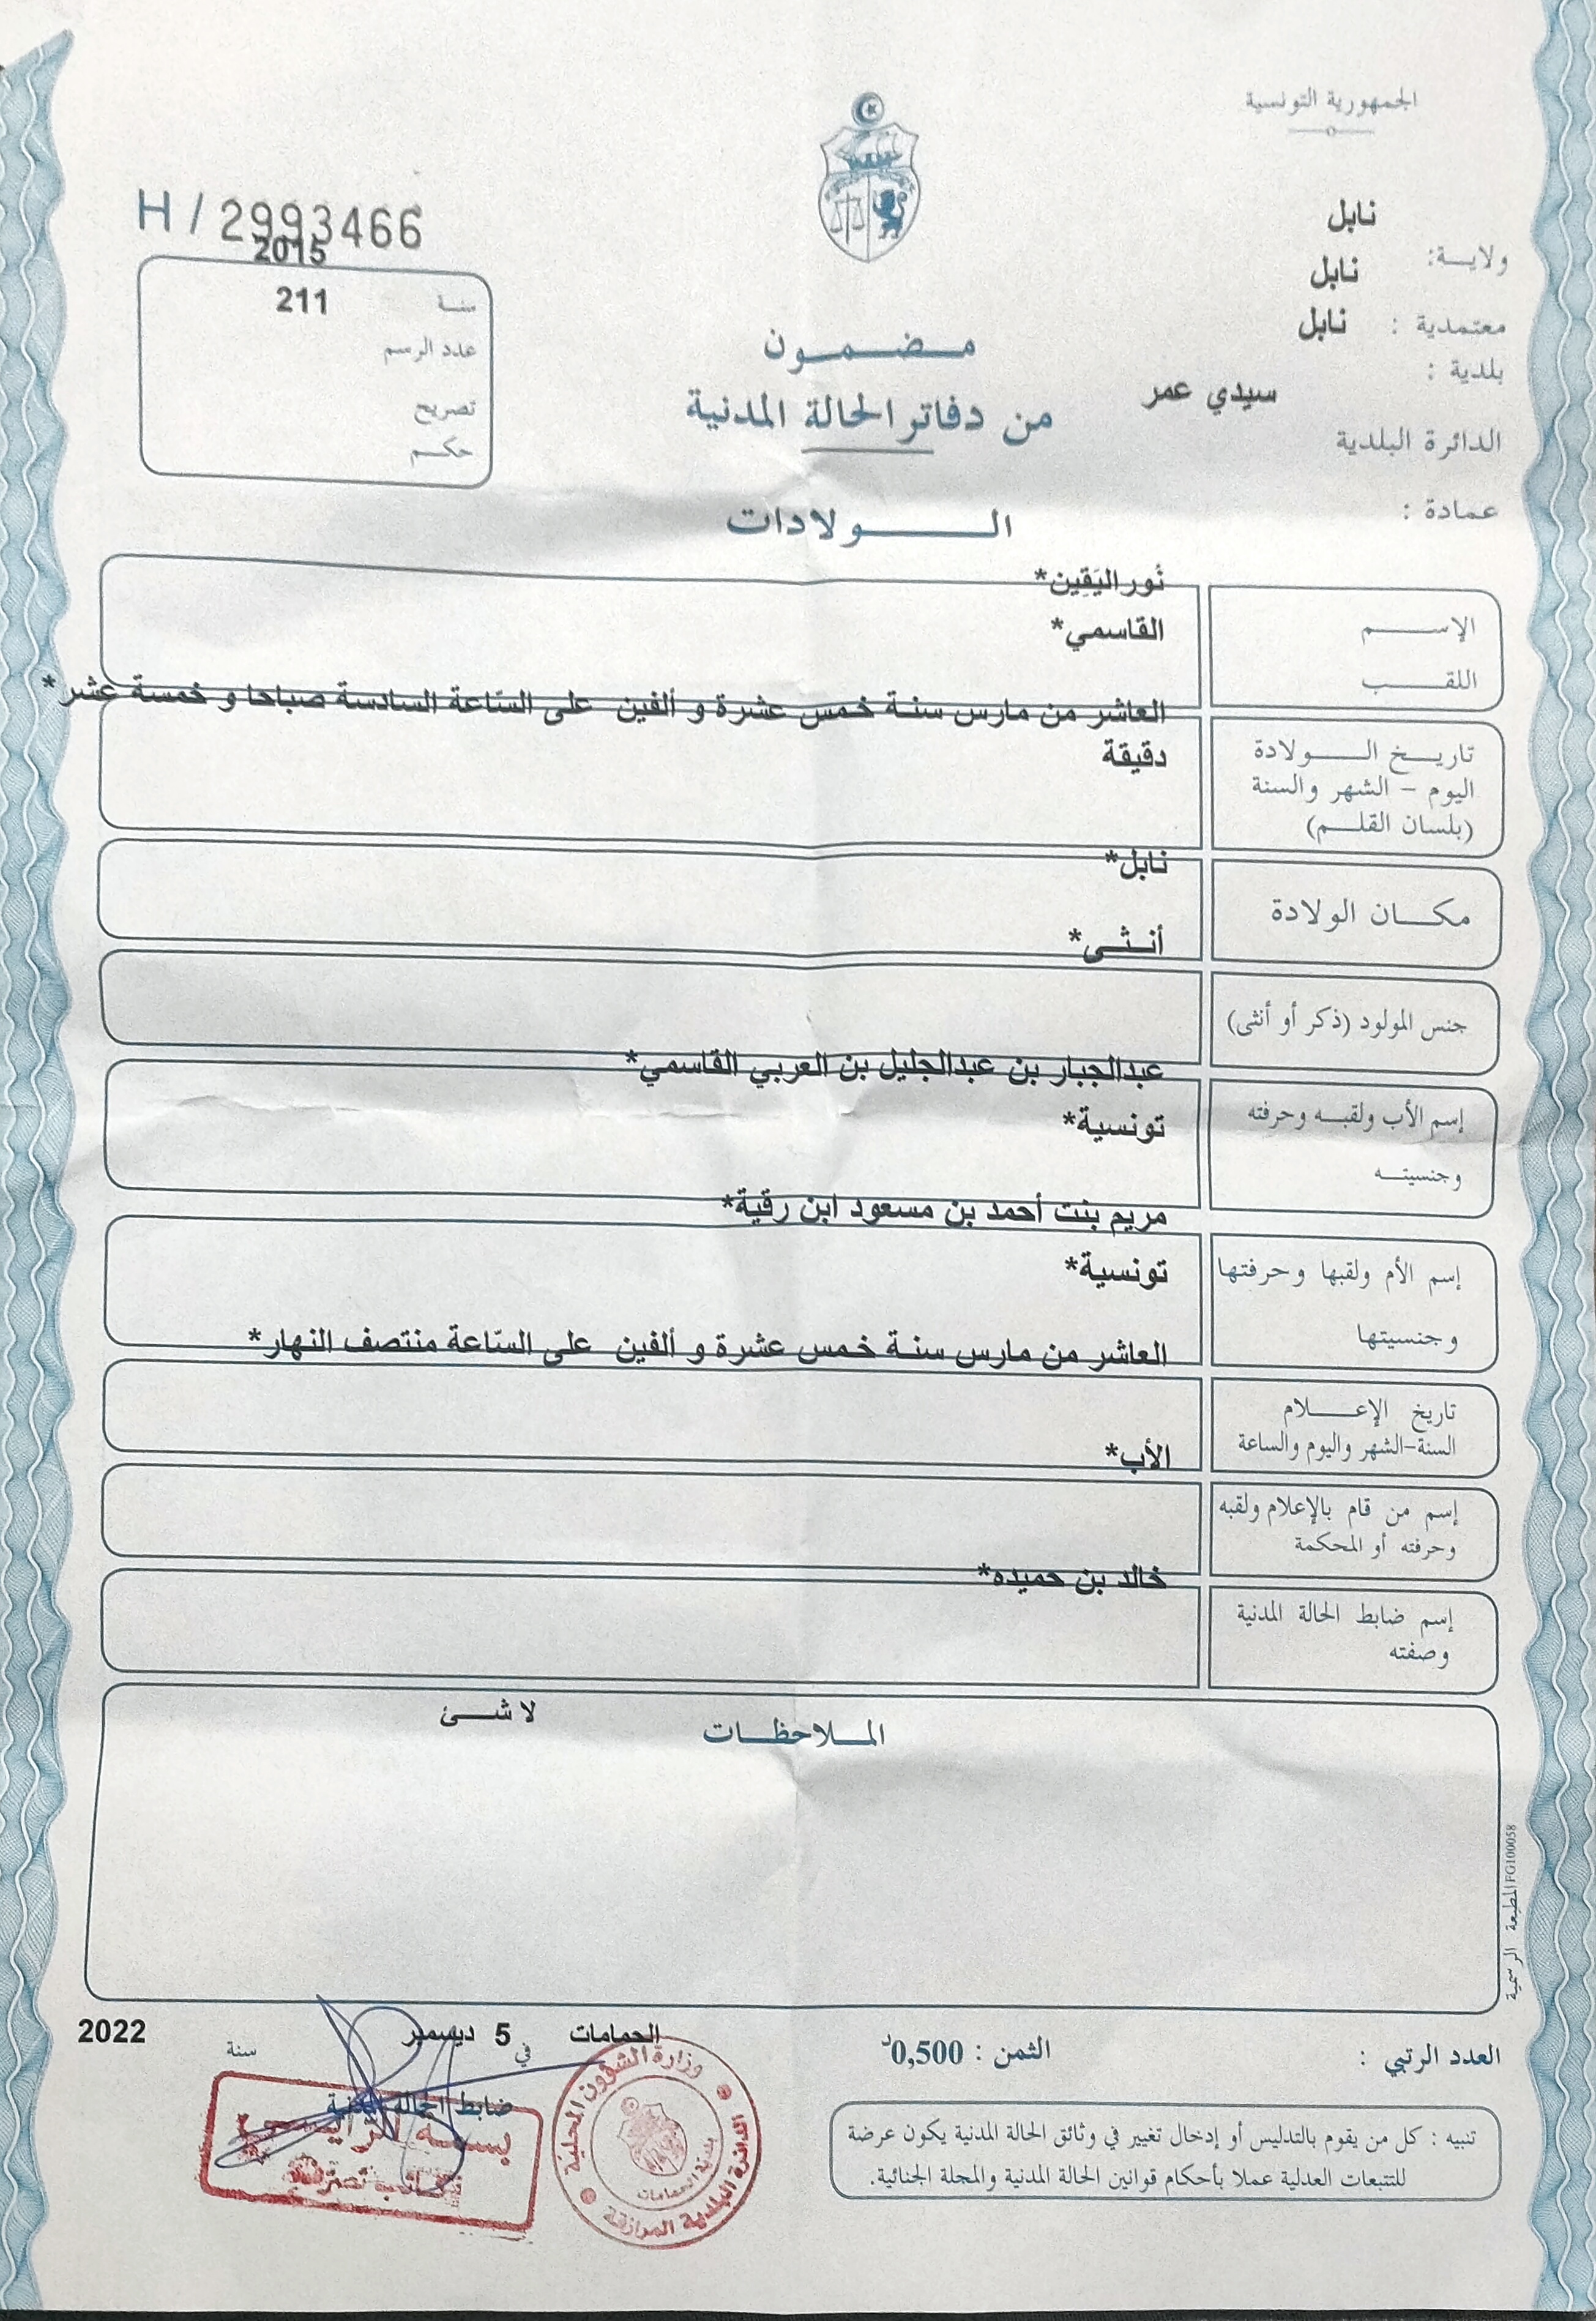 الجمهورية التونسية
H / 2993466
نابل
ولاية:
2015
نابل
سنة
211
معتمدية :
نابل
عدد الرسم
بلدية :
سيدي عمر
تصريح
الدائرة البلدية
حكم
عمادة :
مضمون
من دفاتر الحالة المدنية
الولادات
نُور اليَقِين*
الإسم
القاسمي*
اللقب
العاشر من مارس سنة خمس عشرة و ألفين على السّاعة السادسة صباحا و خمسة عشر*
دقيقة
تاريخ الولادة
اليوم - الشهر والسنة
(بلسان القلم)
نابل*
مكان الولادة
أنثى*
جنس المولود (ذكر أو أنثى)
عبدالجبار بن عبدالجليل بن العربي القاسمي*
إسم الأب ولقبه وحرفته
تونسية*
وجنسيته
مريم بنت أحمد بن مسعود ابن رقية*
إسم الأم ولقبها وحرفتها
تونسية*
وجنسيتها
العاشر من مارس سنة خمس عشرة و ألفين على السّاعة منتصف النهار*
تاريخ الإعلام
السنة-الشهر واليوم والساعة
الأب*
إسم من قام بالإعلام ولقبه
وحرفته أو المحكمة
خالد بن حميده*
إسم ضابط الحالة المدنية
وصفته
لا شئ
الملاحظات
المطبعة الرسمية FG100058
العدد الرتبي :
الثمن : 0,500د
الحمامات في 5 ديسمبر سنة 2022
ضابط الحالة المدنية
بسمة
وزارة الشؤون المحلية
الدائرة البلدية المرازقة
بلدية الحمامات
تنبيه : كل من يقوم بالتدليس أو إدخال تغيير في وثائق الحالة المدنية يكون عرضة
للتتبعات العدلية عملا بأحكام قوانين الحالة المدنية والمجلة الجنائية.